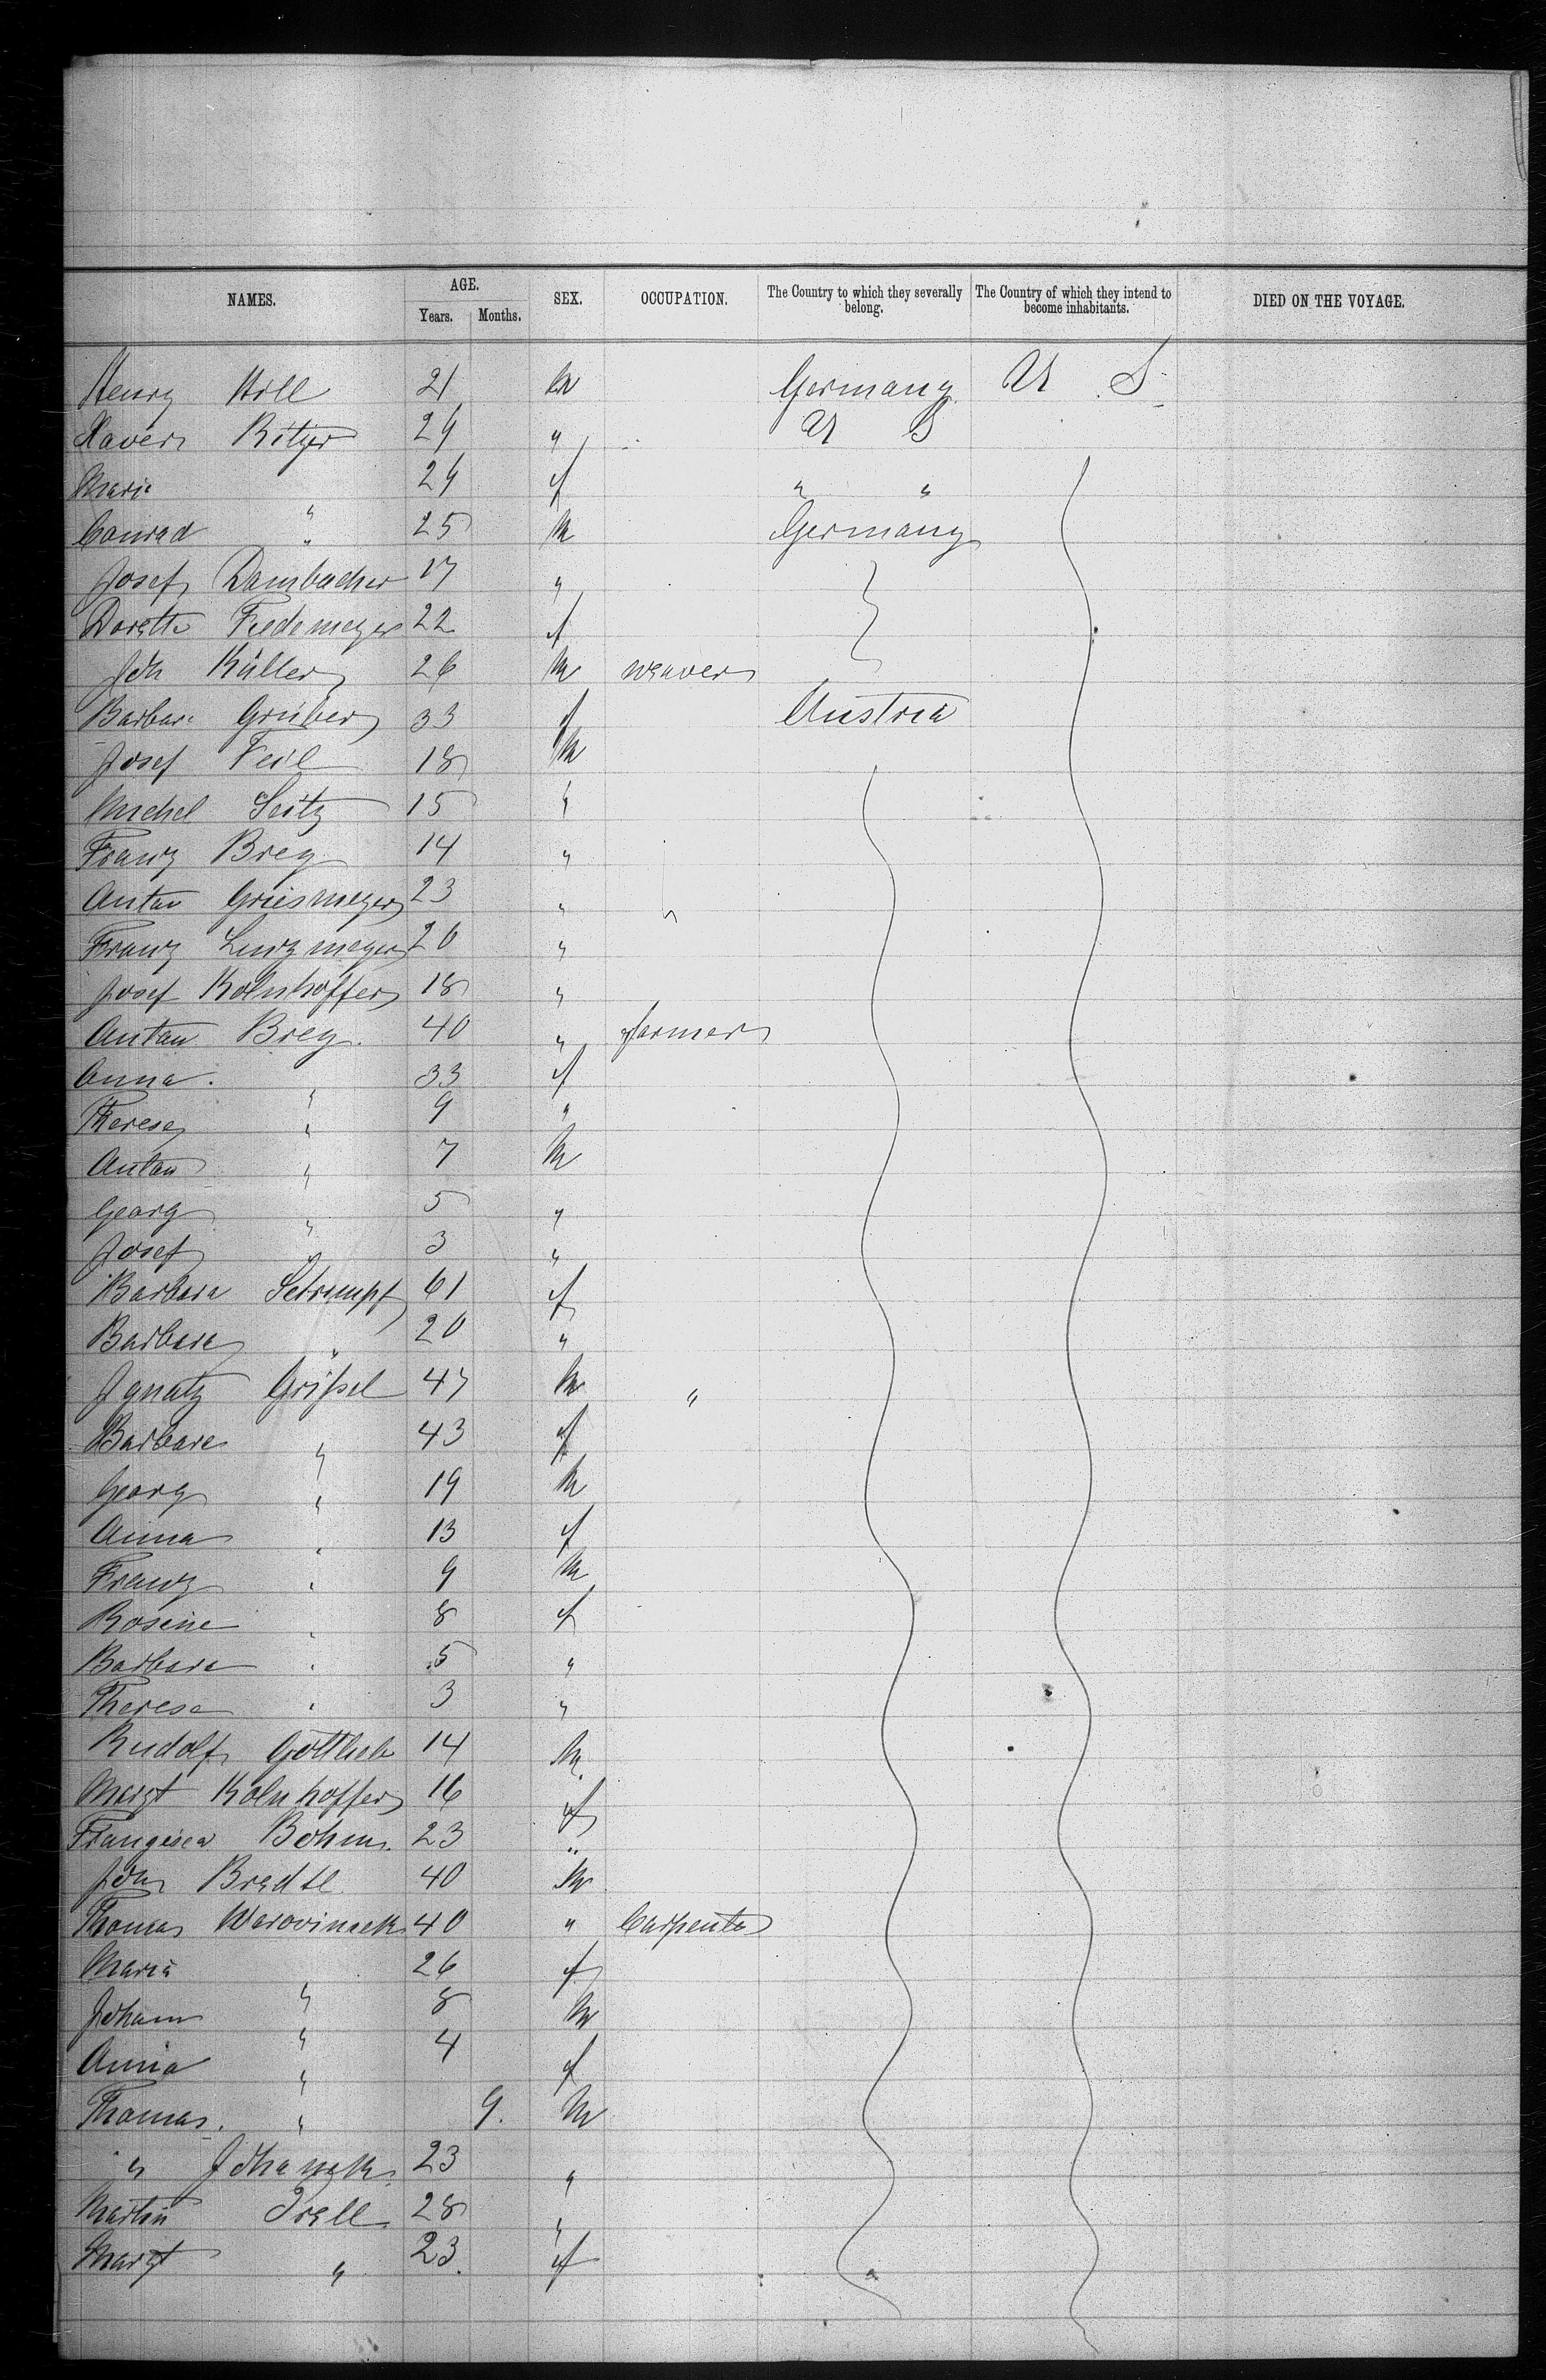 NAMES. AGE. SEX. OCCUPATION. The Country to which they severally belong. The Country of which they intend to become inhabitants. DIED ON THE VOYAGE.
Years. Months.
Henry Hill 21 m Germany U S
Xaver Ritzer 29 " U S
Marie " 29 f " "
Conrad " 25 m Germany
Josef Dambacher 17 "
Dorette Fiedemeyer 22 f
Joh Küller 26 m weaver
Barbara Gruber 33 f Austria
Josef Feil 18 m
Michel Seitz 15 "
Franz Brey 14 "
Anton Griesmeyer 23 "
Franz 20 "
Josef Kolnhoffer 18 "
Anton Brey 40 " farmer
Anna " 33 f
Therese " 9 "
Anton " 7 m
Georg " 5 "
Josef " 3 "
Barbara 61 f
Barbara " 20 "
Ignatz Grißel 47 m "
Barbara " 43 f
Georg " 19 m
Anna " 13 f
Franz " 9 m
Rosine " 8 f
Barbara " 5 "
Therese " 3 "
Rudolf Gottlieb 14 m
Margt Kolnhoffer 16 f
Franzisca Bohm 23 "
Joh Bredtl 40 m
Thomas 40 " Carpenter
Maria " 26 f
Johann " 8 m
Anna " 4 f
Thomas " 9. m
" 23 "
Martin Irell 28 "
Margt " 23 f